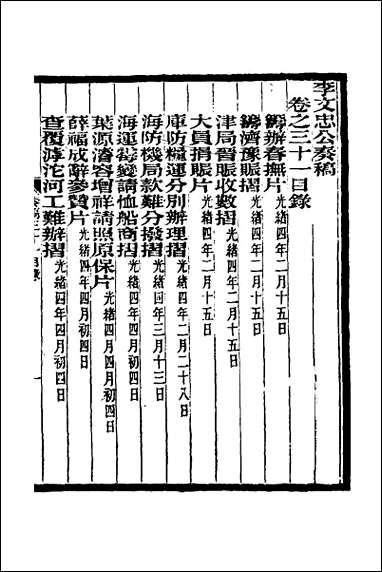 李文忠公奏稿
卷之三十一目錄
籌辦春撫片光緒四年二月十五日
籌濟豫賑摺光緒四年二月十五日
津局晉賑收數摺光緒四年二月十五日
大員捐賑片光緒四年二月十五日
庫防糧運分別辦理摺光緒四年二月二十八日
海防機局款難分撥摺光緒四年三月十三日
海運霉變請恤船商摺光緒四年四月初四日
葉源濬容增祥請照原保片光緒四年四月初四日
薛福成辭參贊片光緒四年四月初四日
查覆滹沱河工難辦摺光緒四年四月初四日